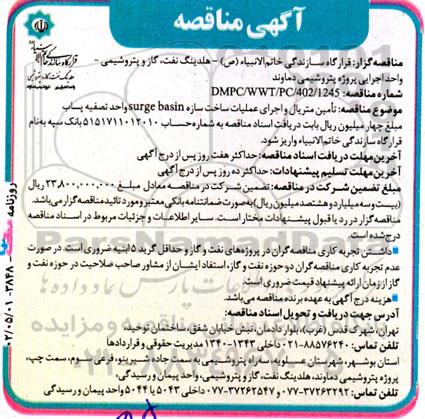 آگهی مناقصه
مناقصه‌گزار: قرارگاه سازندگی خاتم‌الانبیاء (ص) - هلدینگ نفت، گاز و پتروشیمی -
واحد اجرایی پروژه پتروشیمی دماوند
شماره مناقصه: DMPC/WWT/PC/402/1245
موضوع مناقصه: تأمین متریال و اجرای عملیات ساخت سازه surge basin واحد تصفیه پساب
مبلغ چهار میلیون ریال بابت دریافت اسناد مناقصه به شماره حساب ۵۱۵۱۷۱۱۰۱۲۰۱۰ بانک سپه به‌نام
قرارگاه سازندگی خاتم‌الانبیاء واریز شود.
آخرین مهلت دریافت اسناد مناقصه: حداکثر هفت روز پس از درج آگهی
آخرین مهلت تسلیم پیشنهادات: حداکثر ده روز پس از درج آگهی
مبلغ تضمین شرکت در مناقصه: تضمین شرکت در مناقصه معادل مبلغ ۲۳,۸۰۰,۰۰۰,۰۰۰ ریال
(بیست و سه میلیارد و هشتصد میلیون ریال) به‌صورت ضمانتنامه بانکی معتبر و مورد تائید مناقصه‌گزار می‌باشد.
مناقصه‌گزار در رد یا قبول پیشنهادات مختار است. سایر اطلاعات و جزئیات مربوط در اسناد مناقصه
درج شده است.
■ داشتن تجربه کاری مناقصه‌گران در پروژه‌های نفت و گاز و حداقل گرید ۵ ابنیه ضروری است. در صورت
عدم تجربه کاری مناقصه‌گران در حوزه نفت و گاز، استفاده ایشان از مشاور صاحب صلاحیت در حوزه نفت و
گاز از زمان ارائه پیشنهاد قیمت ضروری است.
■ هزینه درج آگهی به عهده برنده مناقصه می‌باشد.
آدرس جهت دریافت و تحویل اسناد مناقصه:
تهران، شهرک قدس (غرب)، بلوار دادمان، نبش خیابان شفق، ساختمان توحید
تلفن تماس: ۸۸۵۷۶۲۴۰-۰۲۱ داخلی ۱۳۴۳-۱۳۴۰ مدیریت حقوقی و قراردادها
استان بوشهر، شهرستان عسلویه، سه‌راه پتروشیمی به سمت جاده شیرینو، فرعی سوم، سمت چپ،
پروژه پتروشیمی دماوند، هلدینگ نفت، گاز و پتروشیمی، واحد پیمان و رسیدگی
تلفن تماس: ۳۷۲۶۳۲۹۲-۰۷۷ و ۳۷۲۶۲۵۴۷-۰۷۷ داخلی ۵۰۴۳ تا ۵۰۴۴ واحد پیمان و رسیدگی
روزنامه
۰۲/۰۵/۰۱-۳۸۴۸